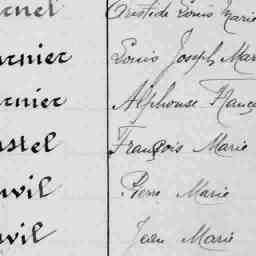 rnel Aristide Louis Marie
rnier Louis Joseph Mar
rnier Alphonse Franç
astel François Marie
nvil Pierre Marie
nvil Jean Marie